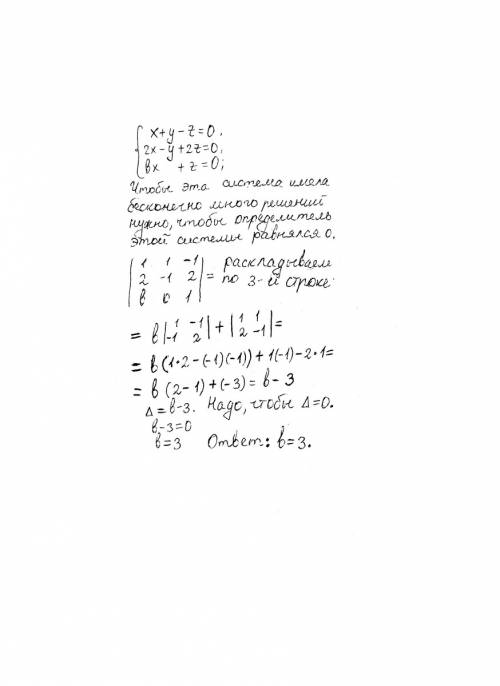 { x+y-z=0,
2x-y+2z=0,
вx +z=0;
Чтобы эта система имела
бесконечно много решений
нужно, чтобы определитель
этой системы равнялся 0.
| 1 1 -1 |
| 2 -1 2 | = раскладываем по 3-й строке:
| в 0 1 |
= в |1 -1; -1 2| + |1 1; 2 -1| =
= в (1•2-(-1)(-1)) + 1(-1)-2•1=
= в (2-1)+(-3)= в-3
Δ=в-3. Надо, чтобы Δ=0.
в-3=0
в=3 Ответ: в=3.